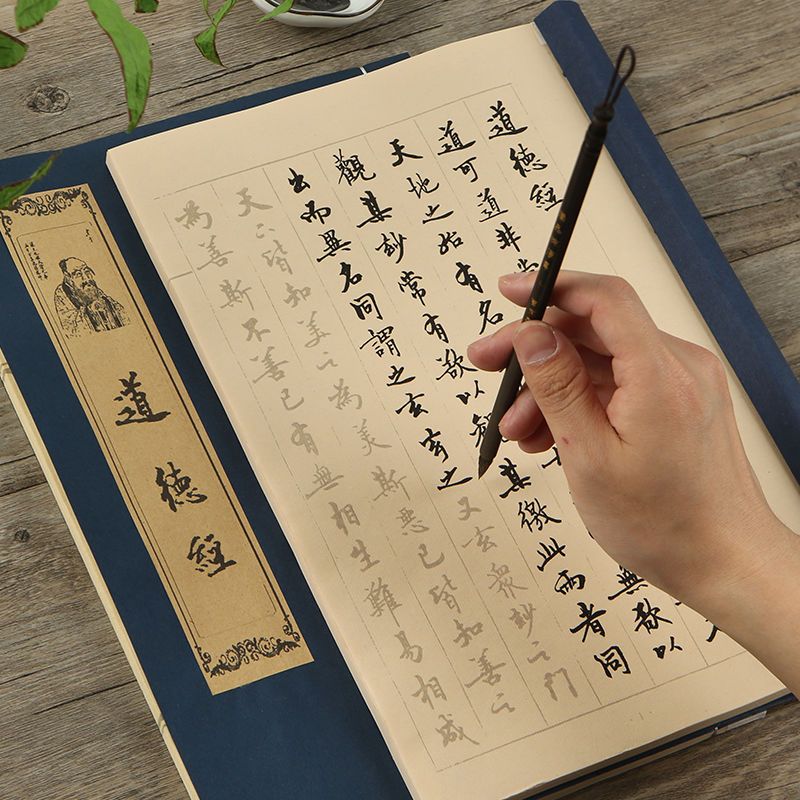 道德經
道可道非常
天地之始有名 無欲以
觀其妙常有欲以觀其繳此兩者同
出而異名同謂之玄玄之又玄衆妙之門
天下皆知美之為美斯惡已皆知善之
為善斯不善已有無相生難易相成
道德經